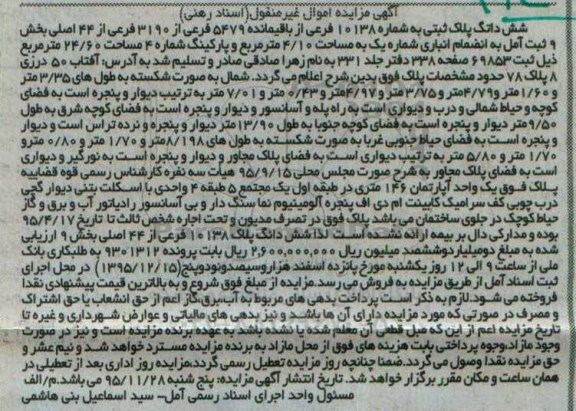 آگهی مزایده اموال غیرمنقول(اسناد رهنی)
شش دانگ پلاک ثبتی به شماره ۱۰۱۳۸ فرعی از باقیمانده ۵۴۷۹ فرعی از ۳۱۹۰ فرعی از ۴۴ اصلی بخش
۹ ثبت آمل به انضمام انباری شماره یک به مساحت ۴/۱۰ مترمربع و پارکینگ شماره ۴ مساحت ۲۴/۶۰ مترمربع
ذیل ثبت ۶۹۸۵۳ صفحه ۳۳۸ دفتر جلد ۳۳۱ به نام زهرا صادقی صادر و تسلیم شد به آدرس: آفتاب ۵۰ درزی
۸ پلاک ۷۸ حدود مشخصات پلاک فوق بدین شرح اعلام می گردد. شمال به صورت شکسته به طول های ۳/۳۵ متر
و ۱/۶۰ متر و ۴/۷۹متر و ۳/۷۵ متر و ۴/۹۷متر و ۰/۴۳ متر و ۷/۰۱ متر به ترتیب دیوار و پنجره است به فضای
کوچه و حیاط شمالی و درب و دیواری است به راه پله و آسانسور و دیوار و پنجره است به فضای کوچه شرق به طول
۹/۵۰متر دیوار و پنجره است به فضای کوچه جنوبا به طول ۱۳/۹۰متر دیوار و پنجره و نرده تراس است و دیوار
و پنجره است به فضای حیاط جنوبی غربا به صورت شکسته به طول های ۸/۱۹۸متر و ۱/۷۰ متر و ۰/۸۰ مترو
۱/۷۰ متر و ۵/۸۰ متر به ترتیب دیواری است به فضای پلاک مجاور و دیوار و پنجره است به نورگیر و دیواری
است به فضای پلاک مجاور به شرح صورت مجلس محلی ۹۵/۹/۱۵ هیأت سه نفره کارشناس رسمی قوه قضاییه
پلاک فوق یک واحد آپارتمان ۱۴۶ متری در طبقه اول یک مجتمع ۵ طبقه ۴ واحدی با اسکلت بتنی دیوار گچی
درب چوبی کف سرامیک کابینت ام دی اف پنجره آلومینیوم نما سنگ دار و بی آسانسور رادیاتور آب و برق و گاز
حیاط کوچک در جلوی ساختمان می باشد پلاک فوق در تصرف مدیون و تحت اجاره شخص ثالث تا تاریخ ۹۵/۴/۱۷
بوده و مدارکی دال بر بیمه ارائه نشده است لذا شش دانگ پلاک ۱۰۱۳۸ فرعی از ۴۴ اصلی بخش ۹ ارزیابی
شده به مبلغ دومیلیاردوششصد میلیون ریال ۲,۶۰۰,۰۰۰,۰۰۰ ریال بابت پرونده ۹۳۰۱۳۱۲ به طلبکاری بانک
ملی از ساعت ۹ الی ۱۲ روز یکشنبه مورخ پانزده اسفند هزاروسیصدونودوپنج(۱۳۹۵/۱۲/۱۵) در محل اجرای
ثبت اسناد آمل از طریق مزایده به فروش می رسد.مزایده از مبلغ فوق شروع و به بالاترین قیمت پیشنهادی نقدا
فروخته می شود.لازم به ذکر است پرداخت بدهی های مربوط به آب،برق،گاز اعم از حق انشعاب یا حق اشتراک
و مصرف در صورتی که مورد مزایده دارای آن ها باشد و نیز بدهی های مالیاتی و عوارض شهرداری و غیره تا
تاریخ مزایده اعم از این که مبلغ قطعی آن معلم شده یا نشده باشد به عهده برنده مزایده است و نیز در صورت
وجود مازاد،وجوه پرداختی بابت هزینه های فوق از محل مازاد به برنده مزایده مسترد خواهد شد و نیم عشر و
حق مزایده نقدا وصول می گردد.ضمنا چنانچه روز مزایده تعطیل رسمی گردد،مزایده روز اداری بعد از تعطیلی در
همان ساعت و مکان مقرر برگزار خواهد شد. تاریخ انتشار آگهی مزایده: پنج شنبه ۹۵/۱۱/۲۸ می باشد.م/الف
مسئول واحد اجرای اسناد رسمی آمل- سید اسماعیل بنی هاشمی